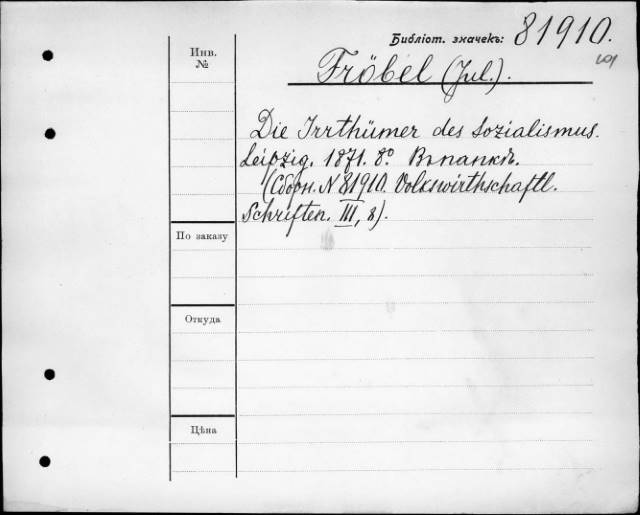 Библіот. значекъ: 81910.
Инв.
№
Fröbel (Jul.).
Die Irrthümer des Sozialismus.
Leipzig. 1871. 8° Въ папкѣ.
(Сборн. N 81910. Volkswirthschaftl.
Schriften. III, 8).
По заказу
Откуда
Цѣна